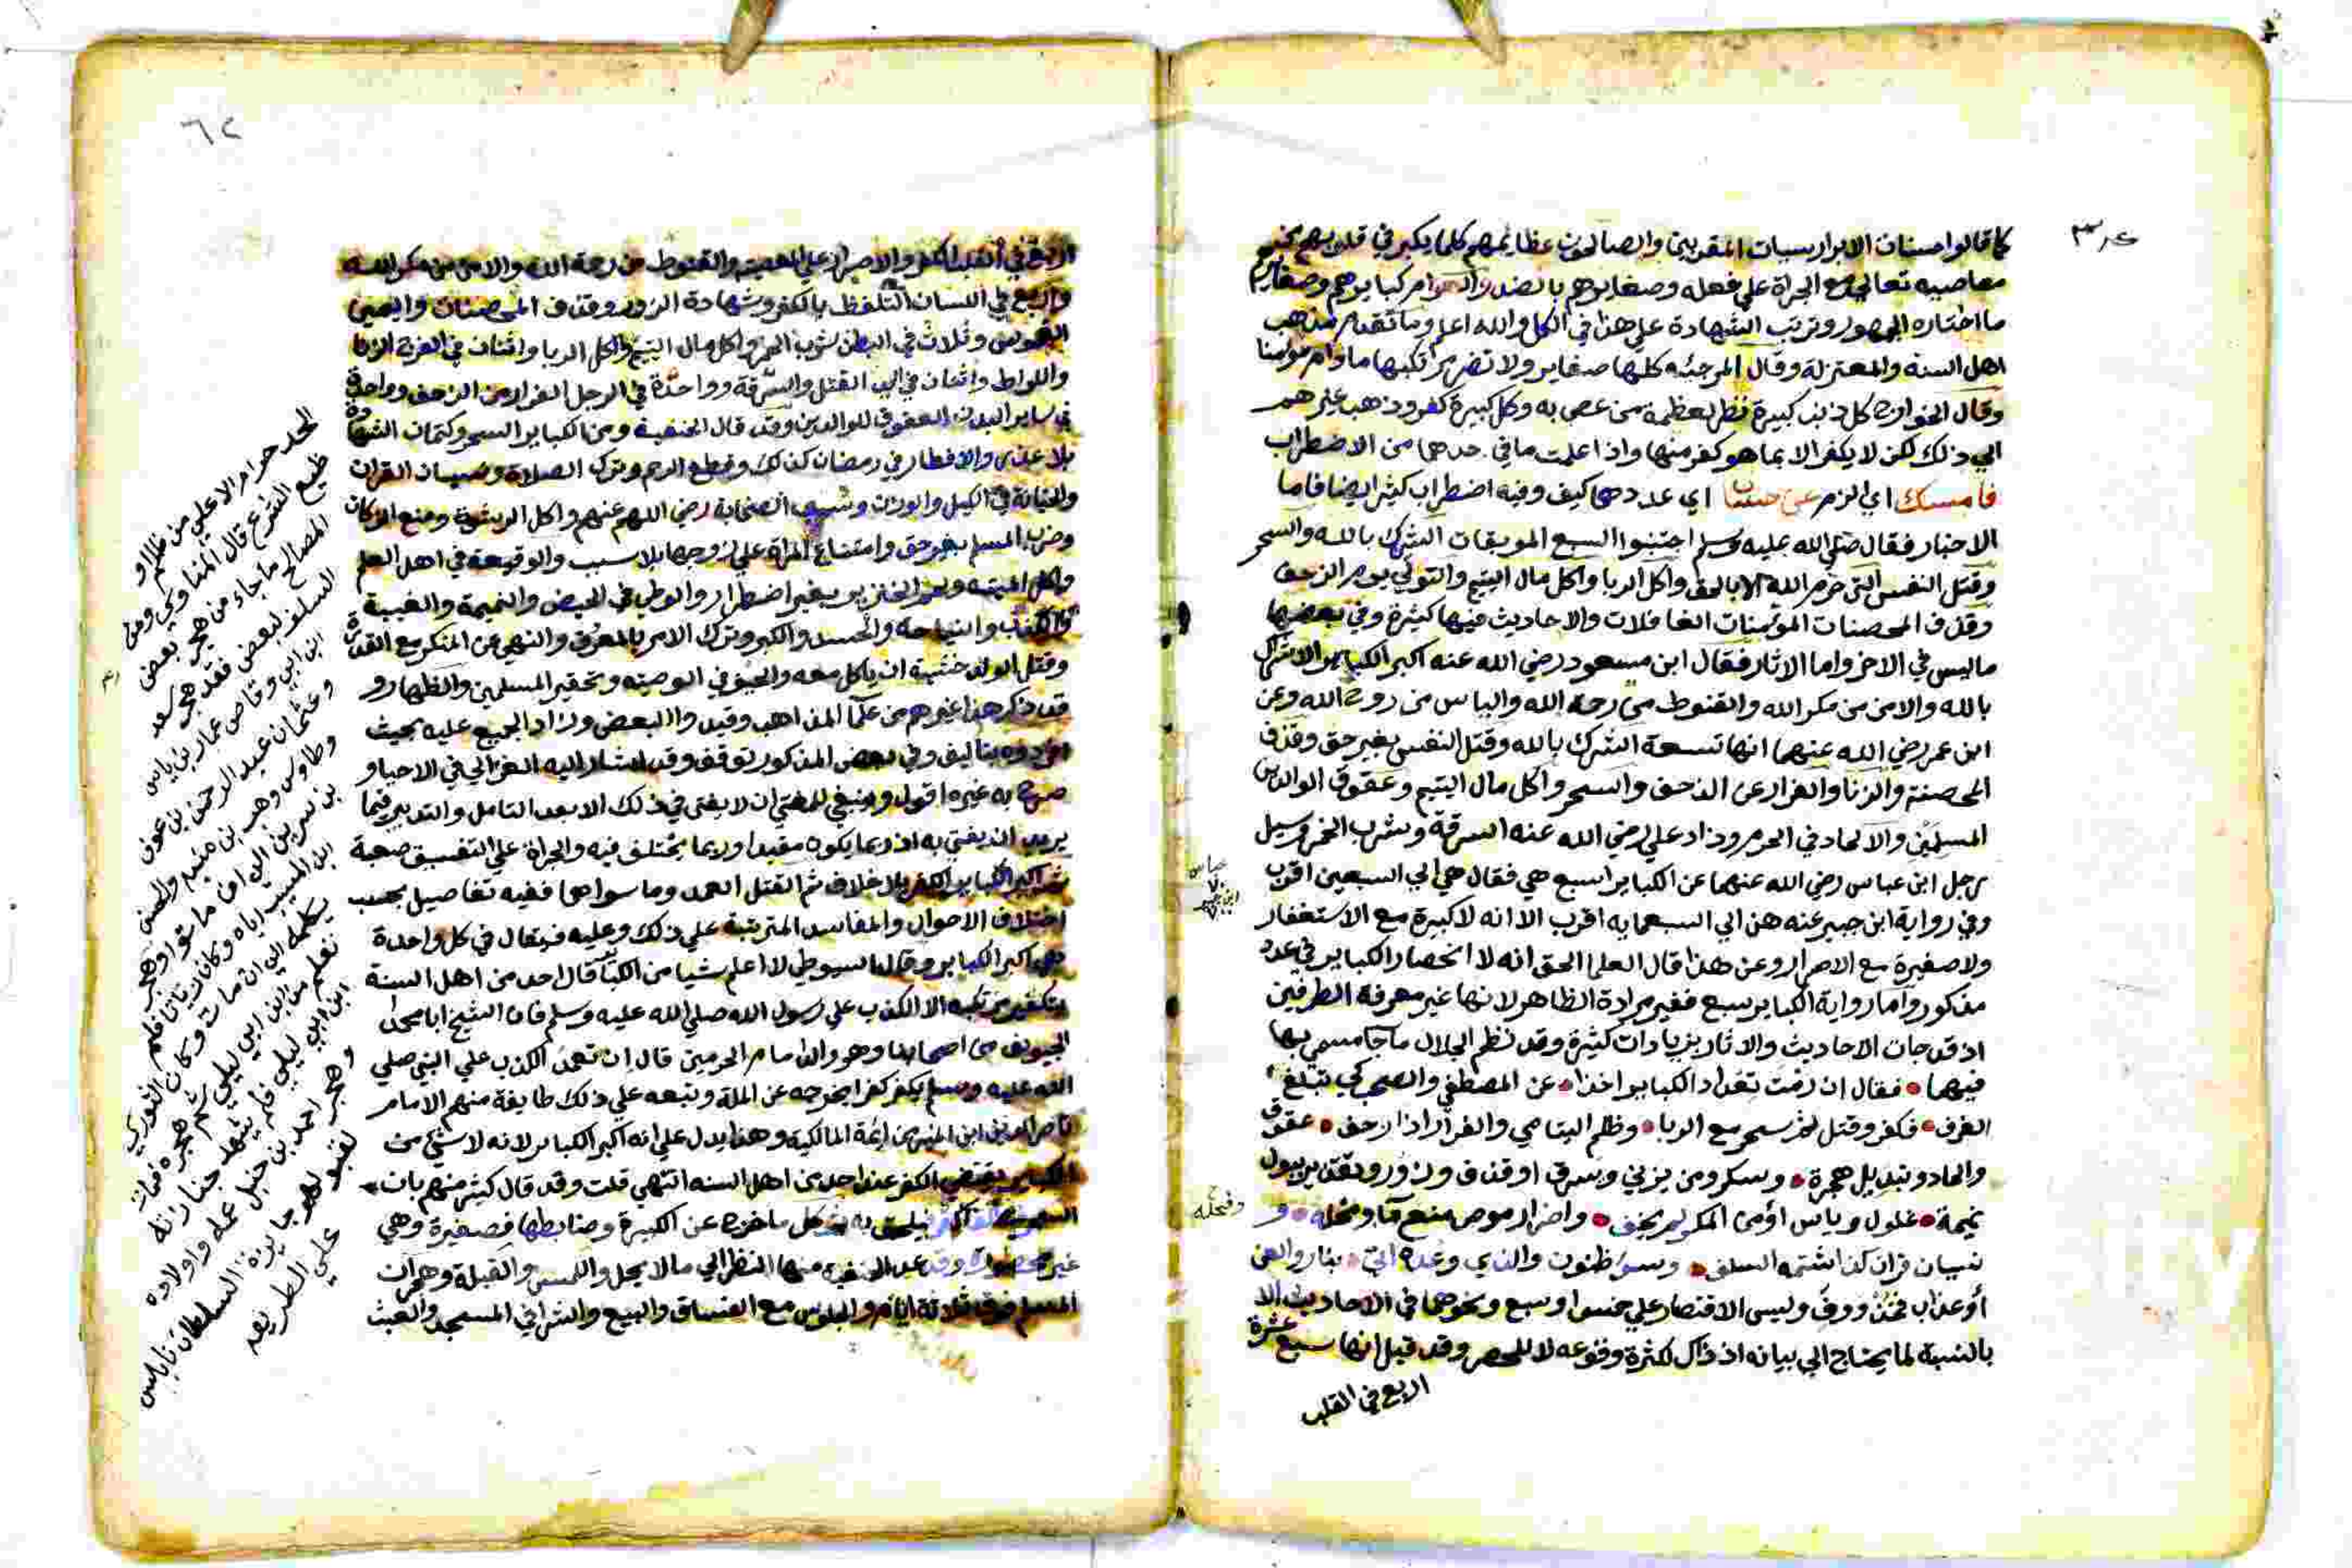 كما قالوا حسنات الابرار سيات المقربين والصالحون عظايمهم كلما يكبر في قلوبهم
معاصيه تعالي مع الجراة علي فعله وصغايرهم بالضد والعوام كبايرهم وصغايرهم
ما اختاره الجمهور وترتب الشهادة علي هذا في الكل والله اعلم وما تقدم مذهب
اهل السنة والمعتزلة وقال المرجئه كلها صغاير ولا تضر مرتكبها مادام مؤمنا
وقال الخوارج كل ذنب كبيرة نظر لعظمة من عصي به وكل كبيرة كفر وذهب غيرهم
الي ذلك لكن لا يكفر الا بما هو كفر منها واذا علمت ما في حدها من الاضطراب
فامسك اي الزم عن اي عددها كيف وفيه اضطراب كثير ايضا فاما
الاخبار فقال صلي الله عليه وسلم اجتنبوا السبع الموبقات الشرك بالله والسحر
وقتل النفس التي حرم الله الا بالحق واكل الربا واكل مال اليتيم والتولي يوم الزحف
وقذف المحصنات المؤمنات الغافلات والاحاديث فيها كثيرة وفي بعضها
ما ليس في الاخر واما الاثار فقال ابن مسعود رضي الله عنه اكبر الكباير الاشراك
بالله والامن من مكر الله والقنوط من رحمة الله والياس من روح الله وعن
ابن عمر رضي الله عنهما انها تسعة الشرك بالله وقتل النفس بغير حق وقذف
المحصنة والزنا والفرار عن الزحف والسحر واكل مال اليتيم وعقوق الوالدين
المسلمين والالحاد في الحرم وزاد علي رضي الله عنه السرقة وشرب الخمر وسيل
رجل ابن عباس رضي الله عنهما عن الكباير اسبع هي فقال هي الي السبعين اقرب
وفي رواية ابن جبير عنه هن الي السبعمايه اقرب الا انه لا كبيرة مع الاستغفار
ولا صغيرة مع الاصرار وعن هذا قال العلما الحق انه لا انحصار الكباير في عدد
مذكور واما رواية الكباير سبع فغير مرادة الظاهر لانها غير معرفة الطرفين
اذ قد جات الاحاديث والاثار بزيادات كثيرة وقد نظم الجلال ما جا مسمي بها
فيها فقال ان رمت تعداد الكباير اخذا عن المصطفي والصحب كي تبلغ
الغرف فكفر وقتل ثم سحر مع الربا وظلم اليتامي والفرار اذا زحف عقوق
والحاد وتبديل هجرة وسكر ومن يزني ويسرق او قذف وزور
نميمة غلول وياس اؤمن المكر لم يخف واضرار موص منع ما ونحله و
نسيان قران كذا شتمه السلف وسوا ظنون والذي وعده اتي بنار والعن
أو عذاب فخذ ووف وليس الاقتصار علي خمس او سبع ونحوهما في الاحاديث الا
بالنسبة لما يحتاج الي بيانه اذ ذاك لكثرة وقوعه لا للحصر وقد قيل انها سبع عشرة
اربع في القلب
٦٢
اربع في القلب الكفر والاصرار علي المعصية والقنوط من رحمة الله والامن من مكر الله
واربع في اللسان التلفظ بالكفر وشهادة الزور وقذف المحصنات واليمين
الغموس وثلاث في البطن شرب الخمر واكل مال اليتيم واكل الربا واثنان في الفرج الزنا
واللواط واثنان في اليد القتل والسرقة وواحدة في الرجل الفرار من الزحف وواحدة
في ساير البدن العقوق للوالدين وقد قال الحنفية ومن الكباير السحر وكتمان الشهادة
بلا عذر والافطار في رمضان كذلك وقطع الرحم وترك الصلاة ونسيان القران
والخيانة في الكيل والوزن وسب الصحابة رضي الله عنهم واكل الرشوة ومنع الزكاة
وضرب المسلم بغير حق وامتناع المراة علي زوجها بلا سبب والوقيعة في اهل العلم
واكل الميته ولحم الخنزير بغير اضطرار والوطي في الحيض والنميمة والغيبة
والكذب والنياحه والحسد والكبر وترك الامر بالمعروف والنهي عن المنكر مع القدرة
وقتل الولد خشية ان ياكل معه والحيف في الوصية وتحقير المسلمين والظهار و
قد ذكر هذا غيرهم من علما المذاهب وقيد والبعض وزاد الجميع عليه بحيث
افردوه بتاليف وفي بعض المذكور توقف وقد اشار اليه الغزالي في الاحيا و
صرح به غيره اقول وينبغي للمفتي ان لا يفتي في ذلك الا بعد التامل والتدبير فيما
يريد ان يفتي به اذ ربما يكون مقيدا وربما يختلف فيه والجراة علي التفسيق صعبة
ثم اكبر الكباير الكفر بلا خلاف ثم القتل العمد وما سواهما ففيه تفاصيل بحسب
اختلاف الاحوال والمفاسد المترتبة علي ذلك وعليه فيقال في كل واحدة
هي اكبر الكباير وقال السيوطي لا اعلم شيا من الكباير قال احد من اهل السنة
بتكفير مرتكبه الا الكذب علي رسول الله صلي الله عليه وسلم فان الشيخ ابا محمد
الجويني من اصحابنا وهو والد امام الحرمين قال ان تعمد الكذب علي النبي صلي
الله عليه وسلم يكفر كفرا يخرجه عن الملة وتبعه علي ذلك طايفة منهم الامام
ناصر الدين ابن المنير من ايمة المالكية وهذا يدل علي انه اكبر الكباير لانه لا شي من
الكباير يقتضي الكفر عند احد من اهل السنه انتهي قلت وقد قال كثير منهم بان
كل ما خرج عن الكبيرة وضابطها فصغيرة وهي
غير محصورة وقد عد الحنفية منها النظر الي ما لا يحل واللمس والقبلة وهجران
المسلم فوق ثلاثة ايام والجلوس مع الفساق والبيع والشرا في المسجد والعبث
حرام الا علي من ظلم او
الشرع قال المناوي ومن
المصالح ما جاء من هجر بعض
السلف لبعض فقد هجر سعد
ابن ابي وقاص عمار بن ياسر
وعثمان عبد الرحمن بن عوف
وطاوس وهب بن منبه والحسن
بن سيرين الي ان ماتوا وهجر
ابن المسيب اباه وكان زياتا فلم
يكلمه الي ان مات وكان الثوري
تعلم من ابن ابي ليلي ثم هجره فمات
ابن ابي ليلي فلم يشهد جنازته
وهجر احمد بن حنبل عمه واولاده
لقبولهم جايزة السلطان